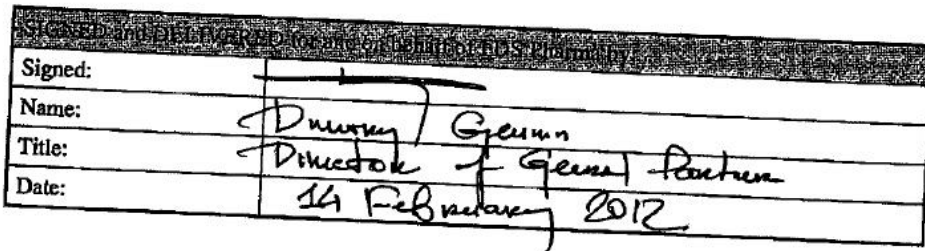 SIGNED and DELIVERED for and on behalf of EDS Pharma by
Signed:
Name: Dmitry
Title: Director of General Partner
Date: 14 February 2012